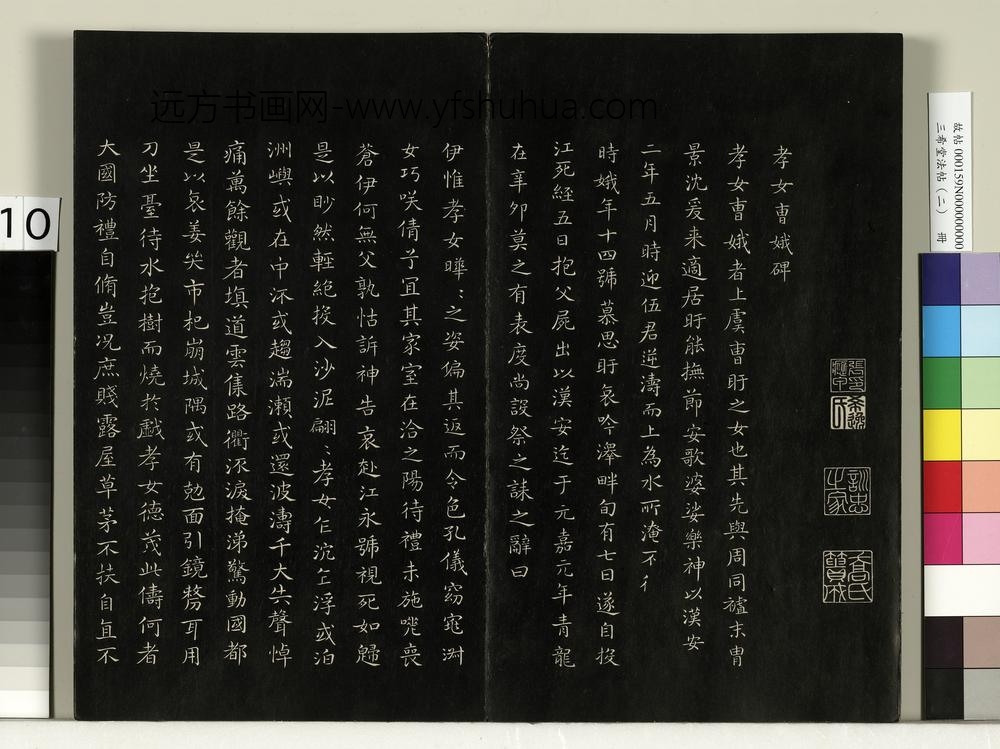 孝女曹娥碑
孝女曹娥者上虞曹盱之女也其先與周同禭末胄
景沈爰来適居盱能撫節安歌婆娑樂神以漢安
二年五月時迎伍君逆濤而上為水所淹不
時娥年十四號慕思盱哀吟澤畔旬有七日遂自投
江死經五日抱父屍出以漢安迄于元嘉元年青龍
在辛卯莫之有表度尚設祭之誄之辭曰
伊惟孝女曄〻之姿偏其返而令色孔儀窈窕淑
女巧咲倩兮冝其家室在洽之陽待禮未施嗟喪
蒼伊何無父孰怙訴神告哀赴江永號視死如歸
是以眇然輕絶投入沙泥翩〻孝女乍沉乍浮或泊
洲嶼或在中沠或趨湍瀬或還波濤千夫失聲悼
痛萬餘觀者塡道雲集路衢沠淚掩涕驚動國都
是以哀姜哭市杞崩城隅或有尅面引鏡剺耳用
刀坐臺待水抱樹而燒於戯孝女德茂此儔何者
大國防禮自脩豈况庶賤露屋草茅不扶自直不
訓忠之家
高氏
远方书画网-www.yfshuhua.com
故帖 000159N000000000
三希堂法帖（二） 冊
10